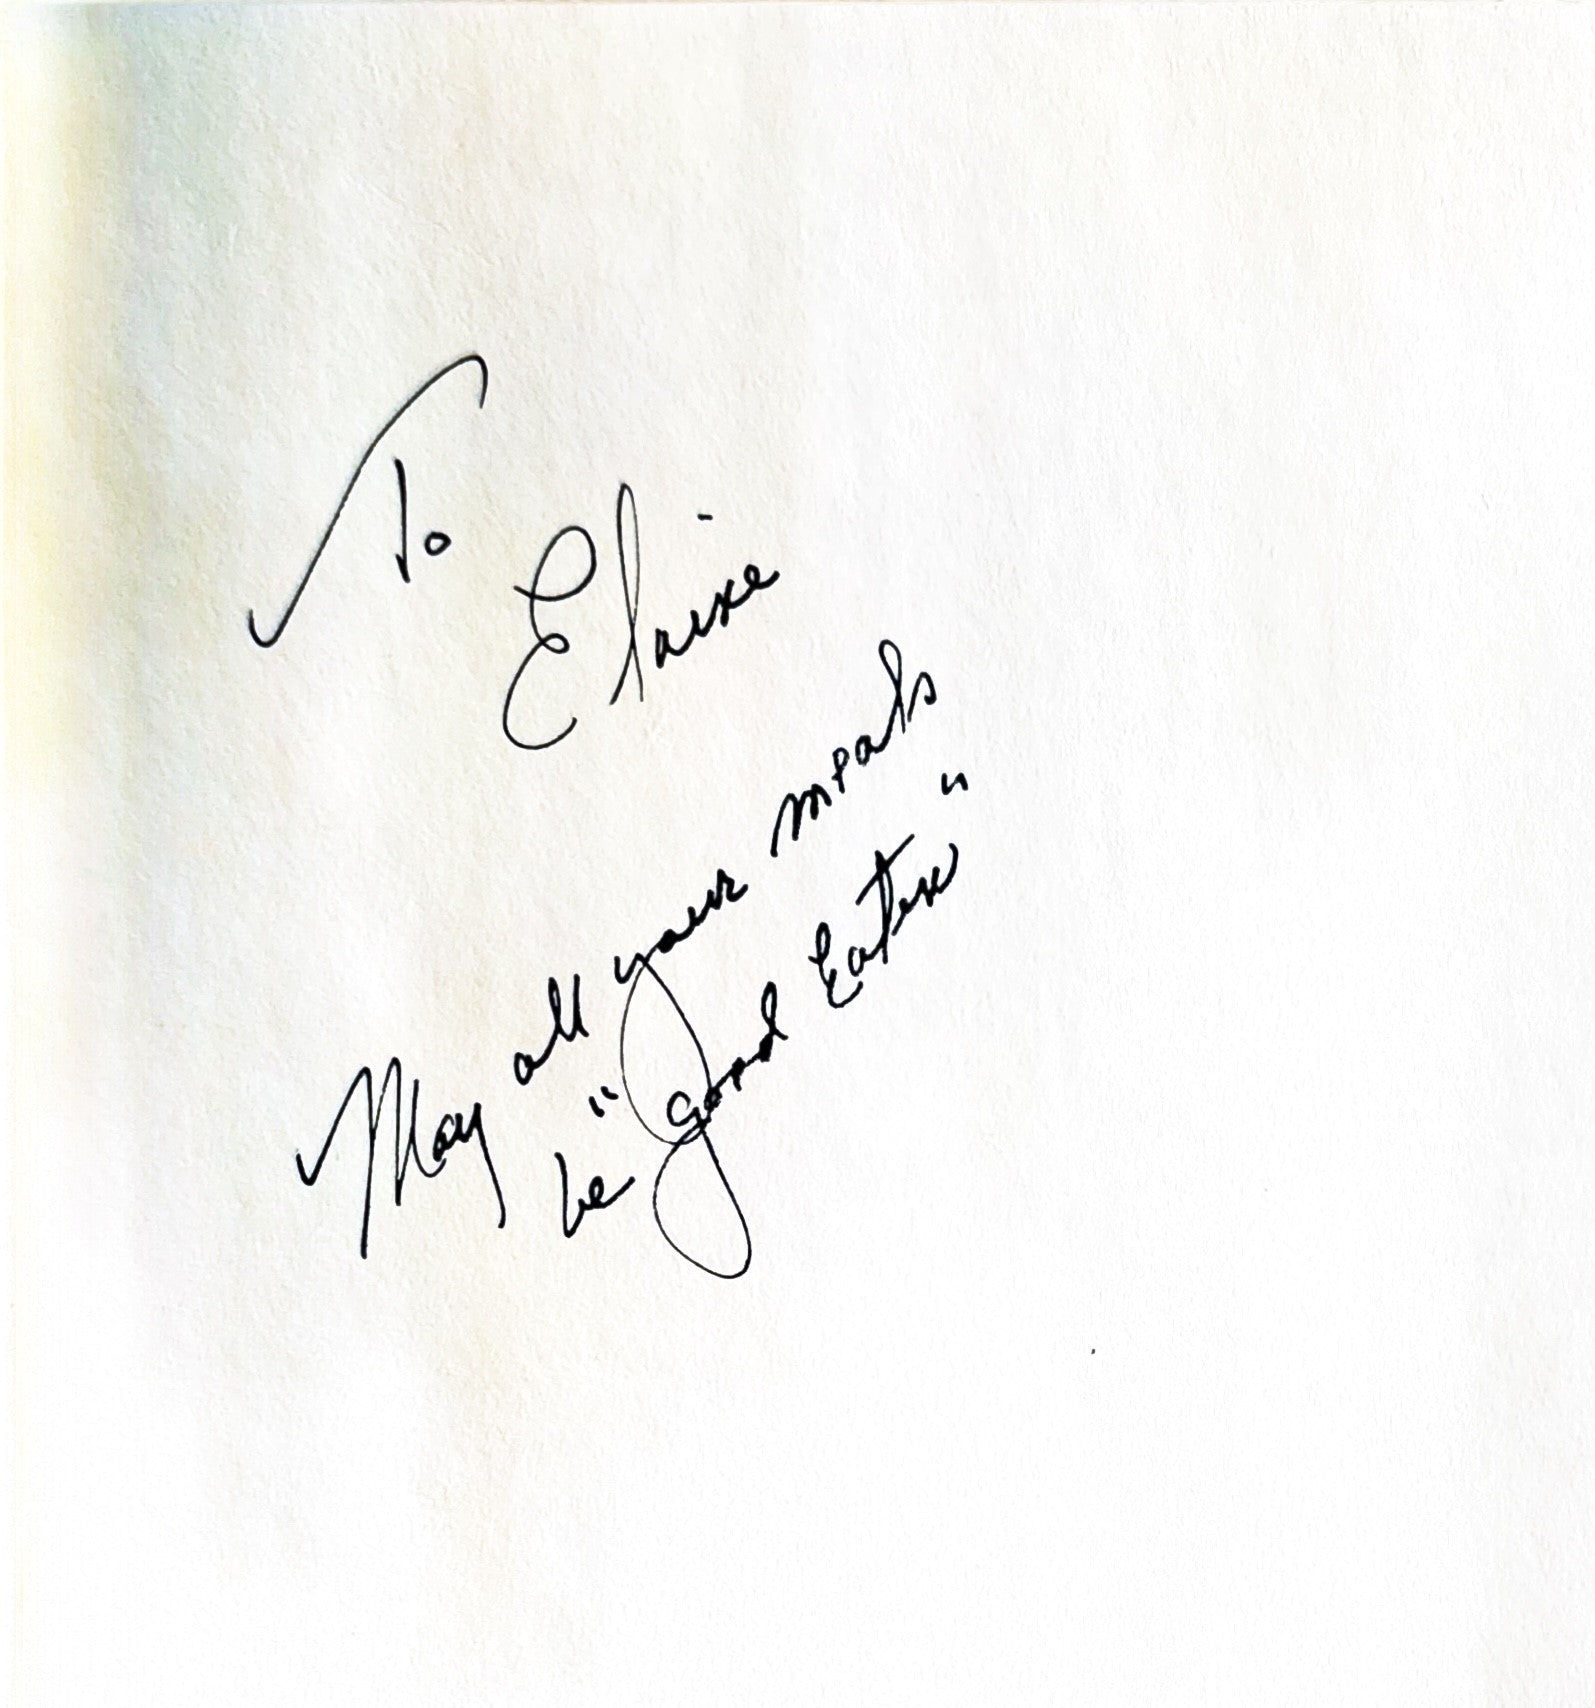 To
Elaine
May all your meals
be "Good Eatin"